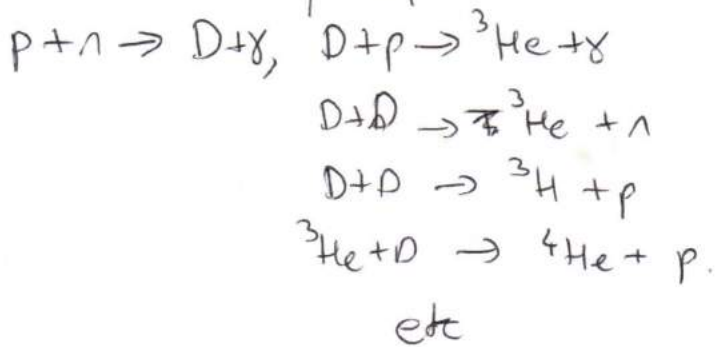 p + n → D + γ, D + p → ³He + γ
D + D → ³He + n
D + D → ³H + p
³He + D → ⁴He + p.
etc